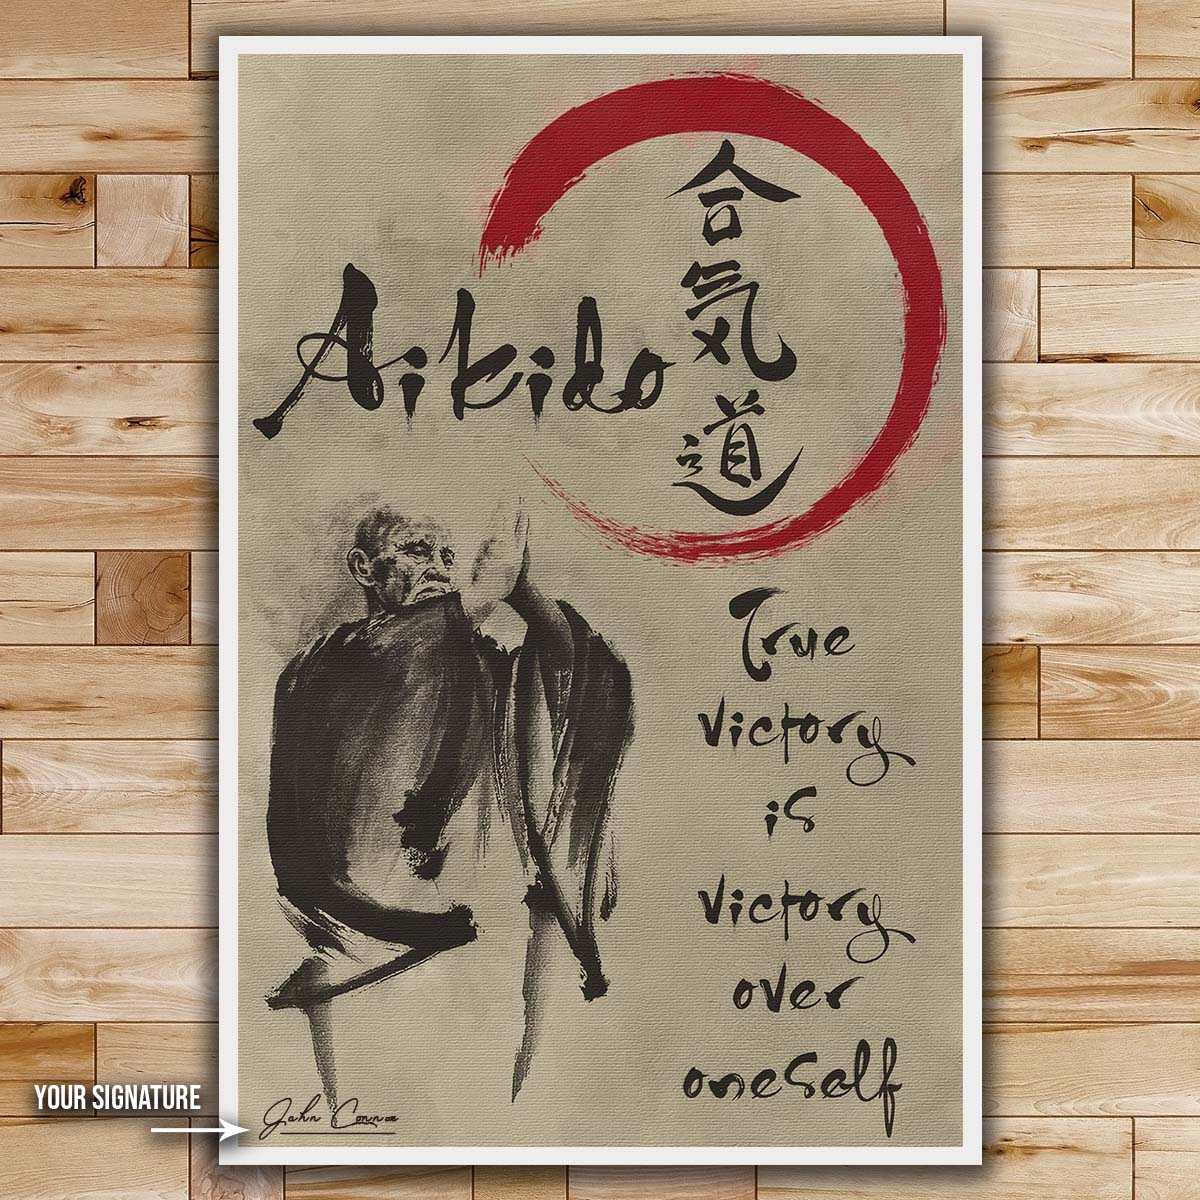 合
気
道
Aikido
True
victory
is
victory
over
oneself
YOUR SIGNATURE
John Connor